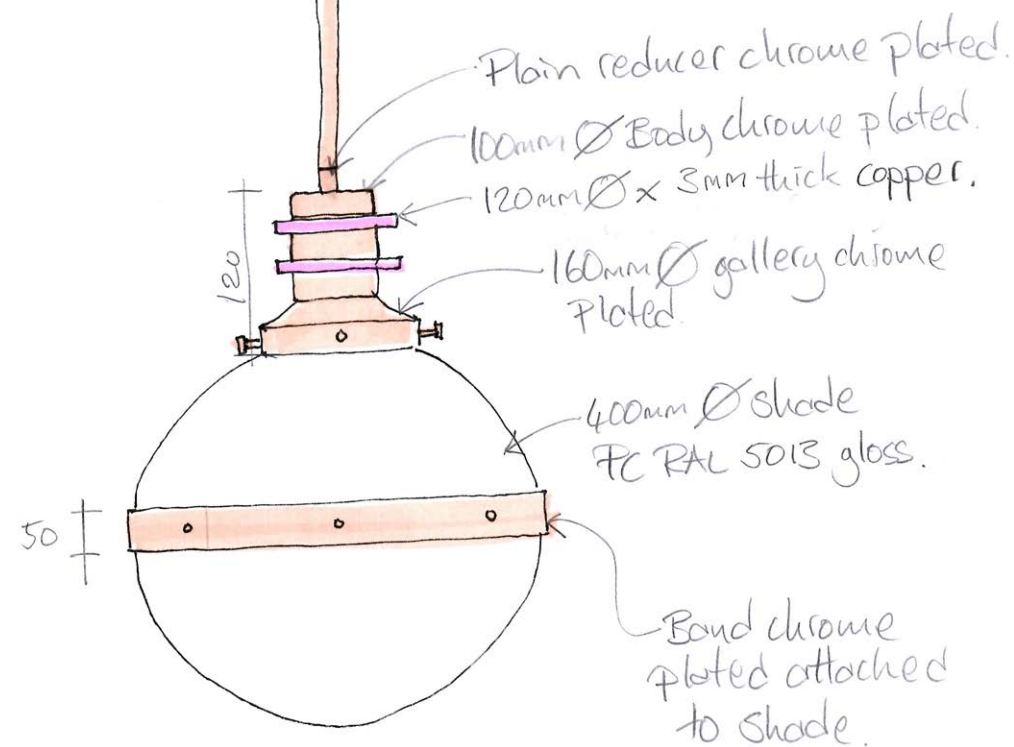 Plain reducer chrome plated.
100mm Ø Body chrome plated.
120mm Ø x 3mm thick copper.
120
160mm Ø gallery chrome
Plated.
400mm Ø shade
PC RAL 5013 gloss.
50
Band chrome
plated attached
to shade.